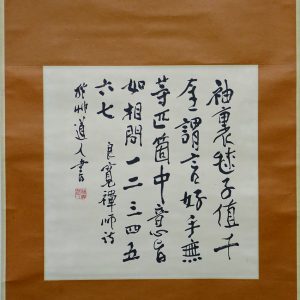 袖裏毬子値千
金謂言好手無
等匹箇中意旨
如相問一二三四五
六七　良寬禪師詩
道人書